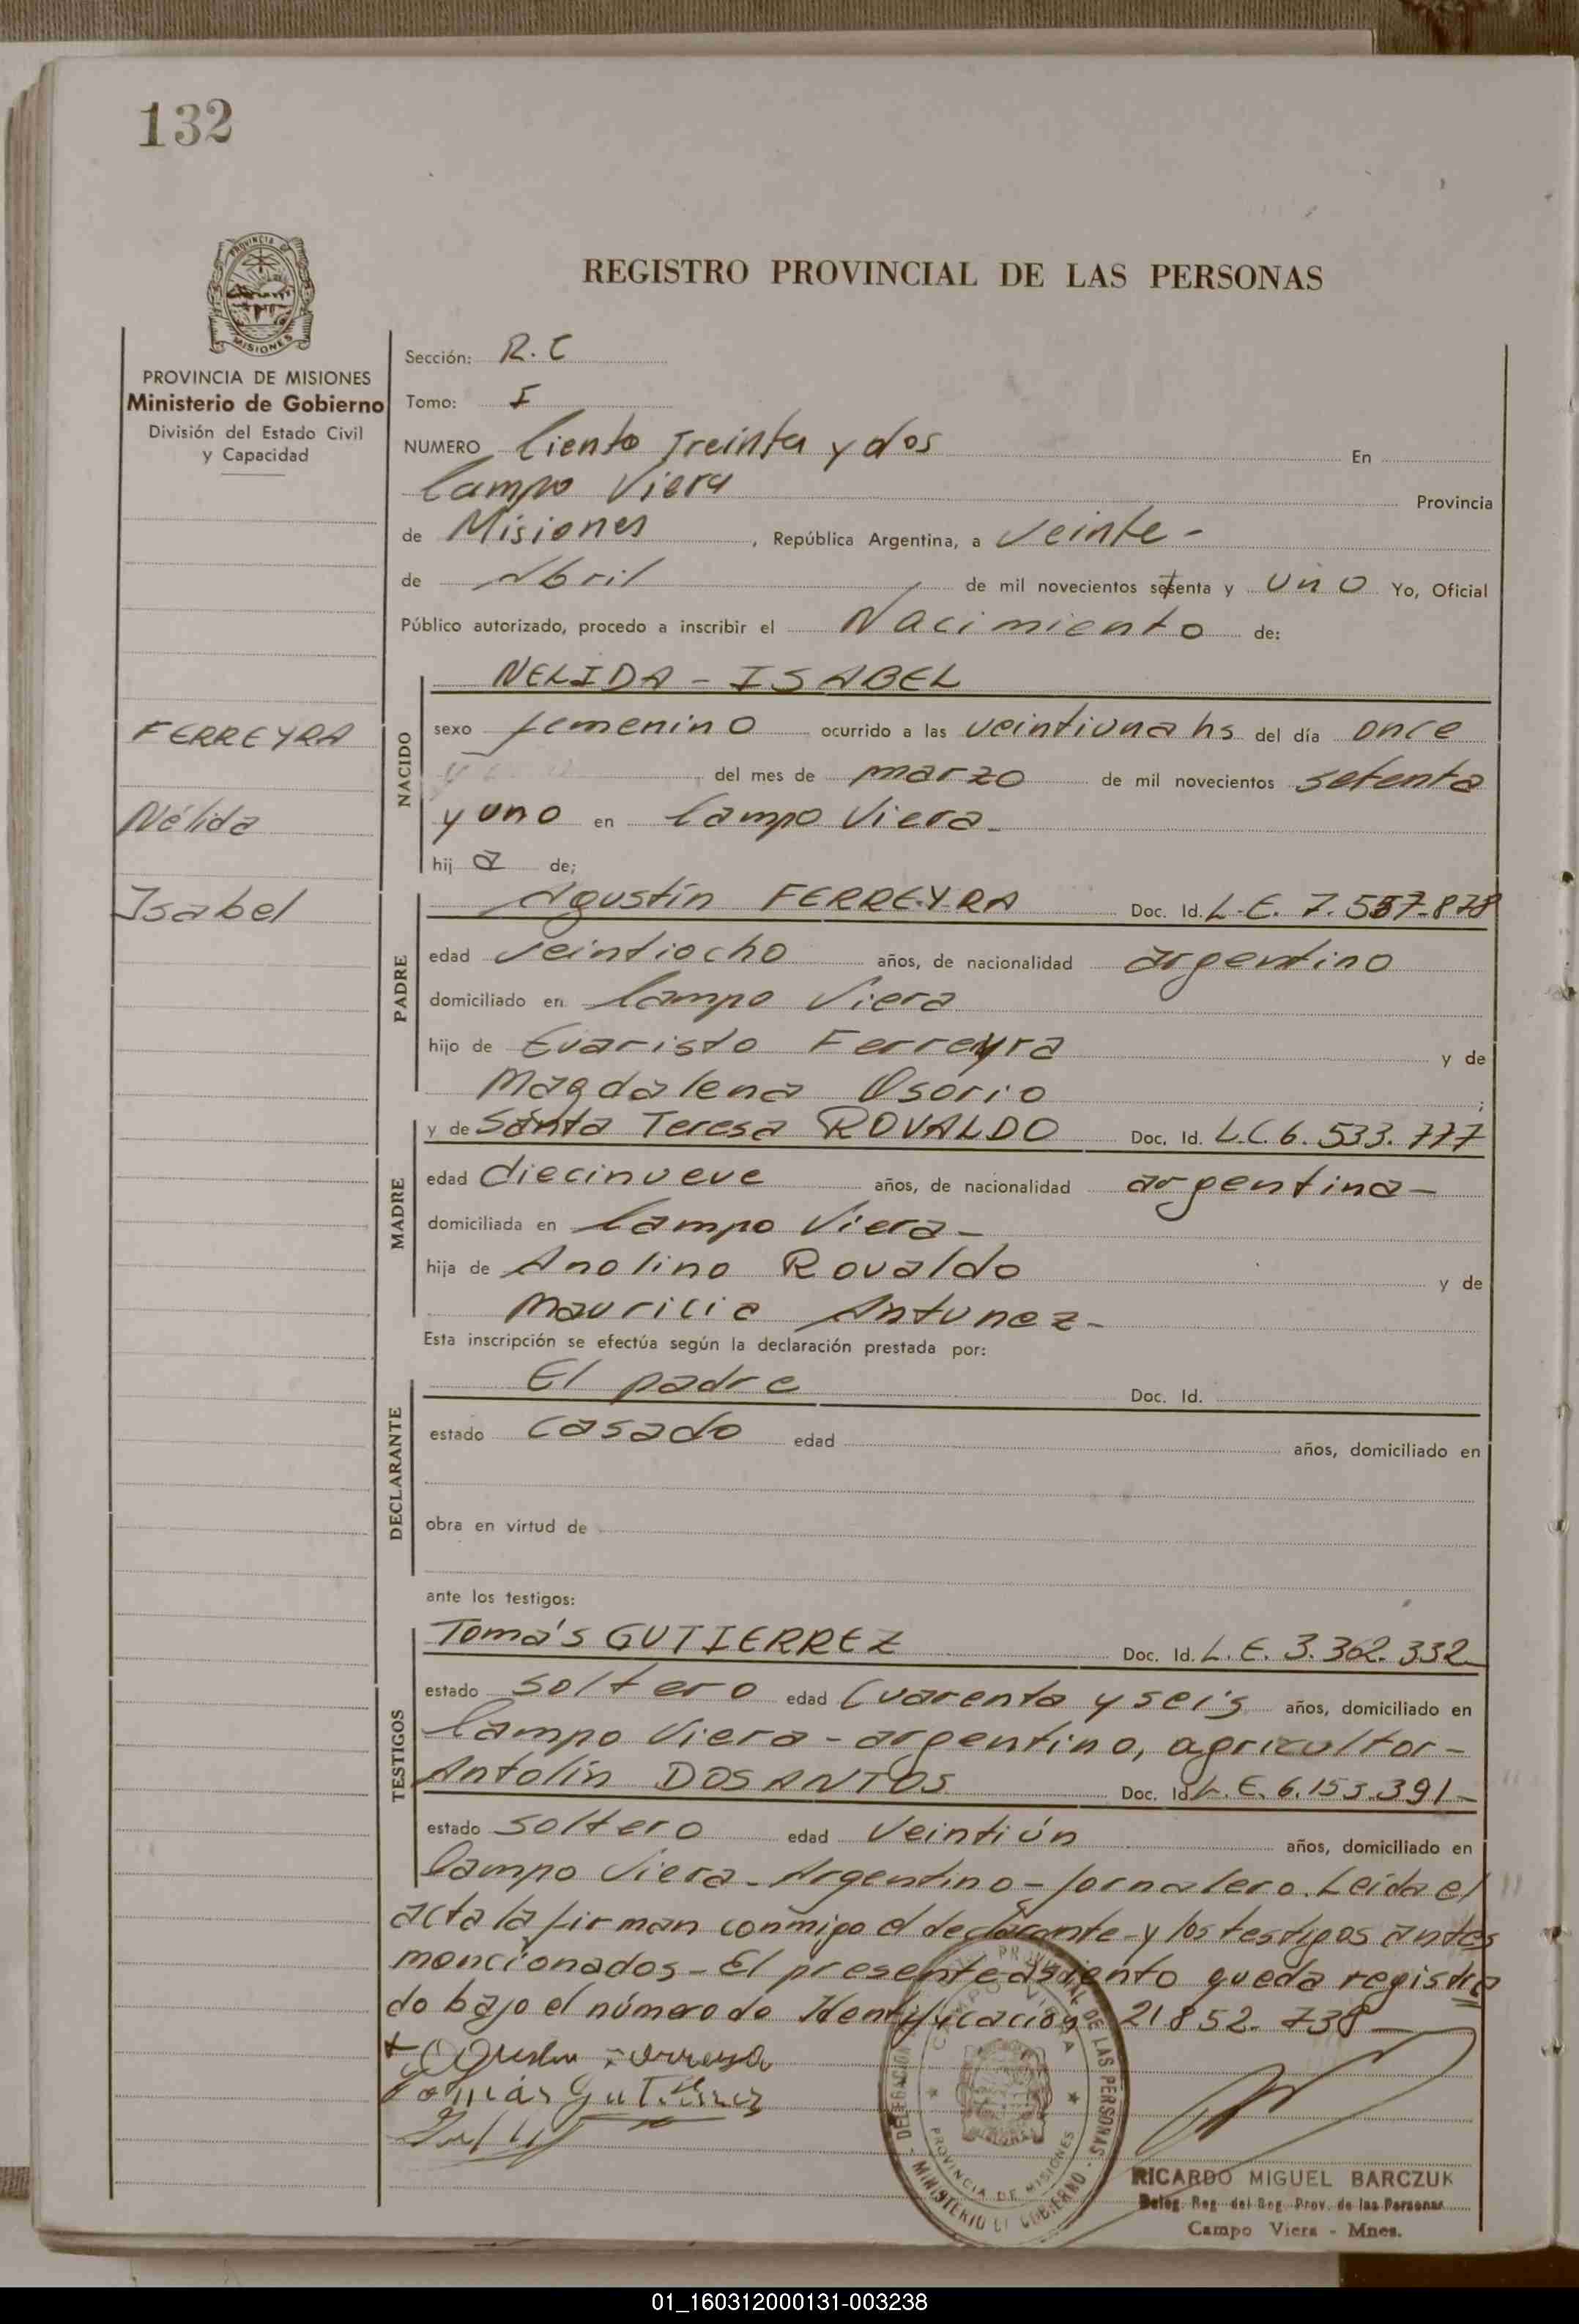 132
PROVINCIA DE MISIONES
REGISTRO PROVINCIAL DE LAS PERSONAS
PROVINCIA DE MISIONES
Ministerio de Gobierno
División del Estado Civil
y Capacidad
FERREYRA
Nélida
Isabel
Sección: R. C
Tomo: I
NUMERO Ciento Treinta y dos En
Campo Viera Provincia
de Misiones, República Argentina, a Veinte -
de Abril de mil novecientos setenta y uno Yo, Oficial
Público autorizado, procedo a inscribir el Nacimiento de:
NACIDO
NELIDA - ISABEL
sexo femenino ocurrido a las veintiuna hs del día once
del mes de marzo de mil novecientos setenta
y uno en Campo Viera -
hij a de;
PADRE
Agustín FERREYRA Doc. Id. L. E. 7.557.878
edad veintiocho años, de nacionalidad argentino
domiciliado en Campo Viera
hijo de Evaristo Ferreyra y de
Magdalena Osorio ;
MADRE
y de Santa Teresa ROVALDO Doc. Id. L.C. 6.533.777
edad diecinueve años, de nacionalidad argentina -
domiciliada en Campo Viera -
hija de Anolino Rovaldo y de
Mauricia Antunez -
Esta inscripción se efectúa según la declaración prestada por:
DECLARANTE
El padre Doc. Id.
estado casado edad años, domiciliado en
obra en virtud de
ante los testigos:
TESTIGOS
Tomás GUTIERREZ Doc. Id. L. E. 3.362.332
estado soltero edad Cuarenta y seis años, domiciliado en
Campo Viera - argentino, agricultor -
Antolín DOSANTOS Doc. Id L. E. 6.153.391 -
estado soltero edad Veintiún años, domiciliado en
Campo Viera - Argentino - Jornalero. Leída el
acta la firman conmigo el declarante y los testigos antes
mencionados - El presente asiento queda registra
do bajo el número de Identificación 21.852.738 -
Agustin Ferreyra
Tomás Gutierrez
DELEGACION PROVINCIAL DE LAS PERSONAS - MINISTERIO DE GOBIERNO
CAMPO VIERA
PROVINCIA DE MISIONES
RICARDO MIGUEL BARCZUK
Deleg. Reg. del Reg. Prov. de las Personas
Campo Viera - Mnes.
01_160312000131-003238